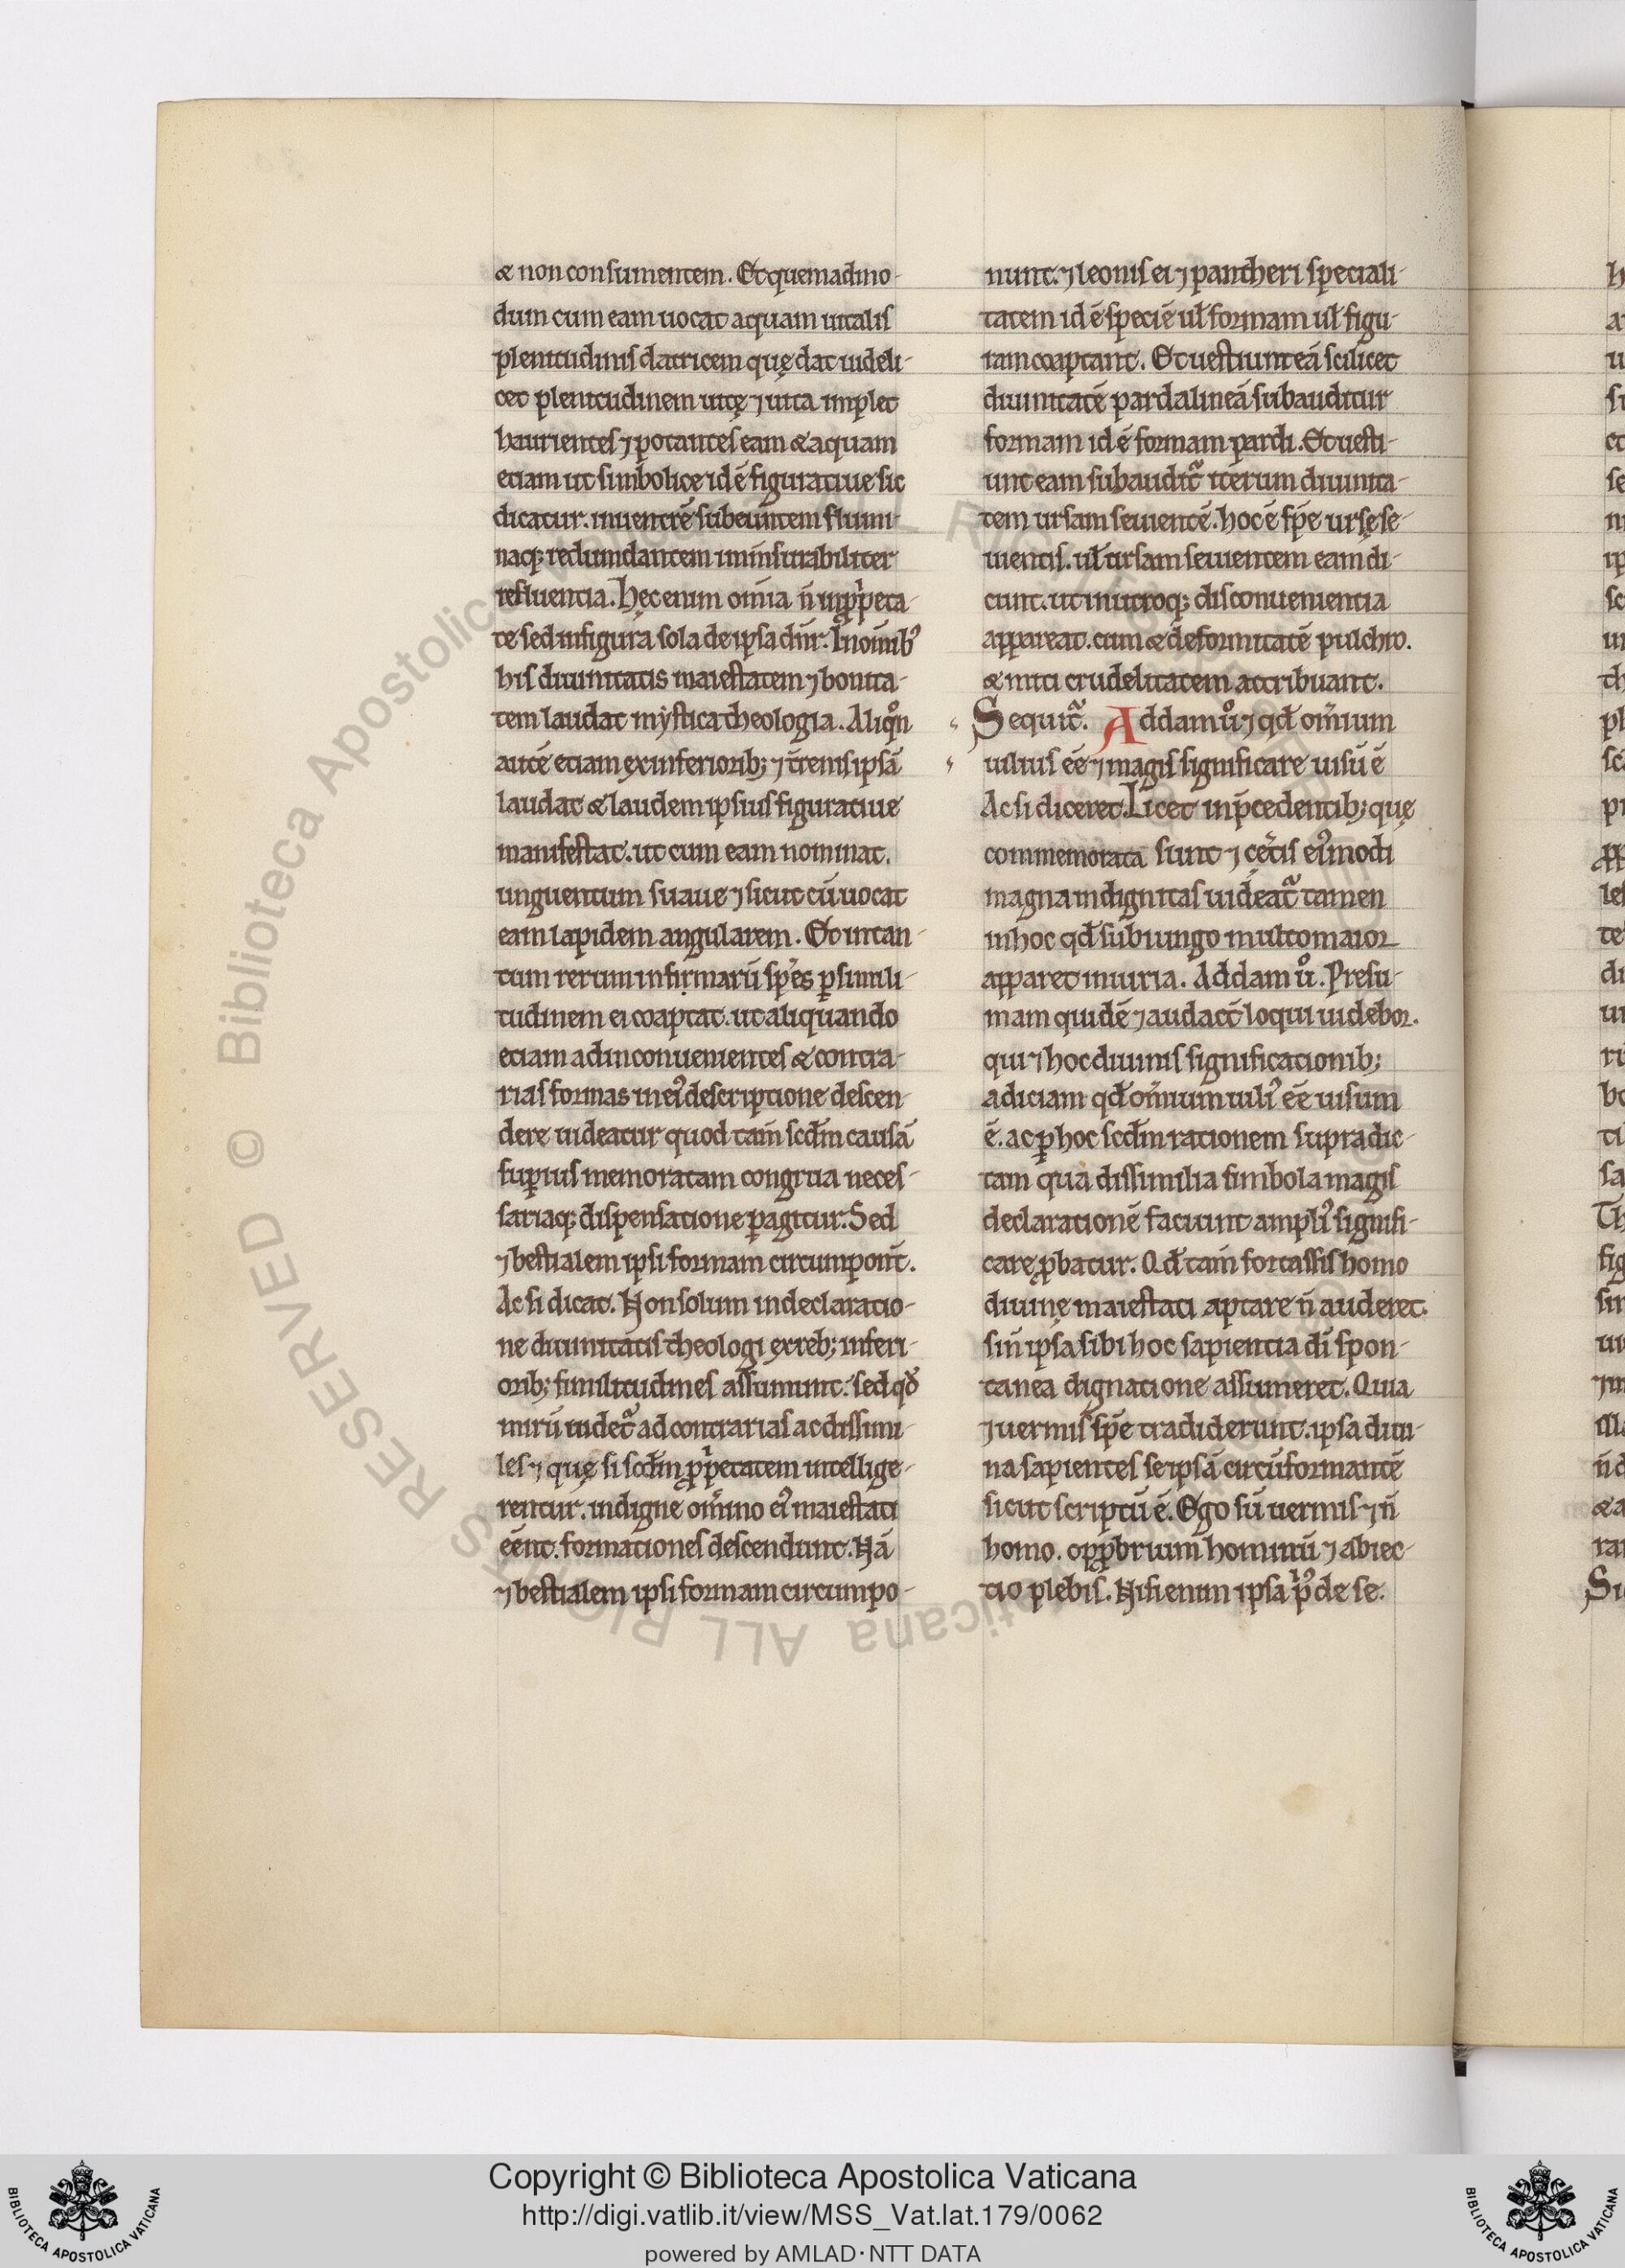 & non consumentem. Et quemadmo-
dum cum eam uocat aquam uitalis
plenitudinis datricem quę dat uideli-
cet plenitudinem uitę ⁊ uita implet
haurientes ⁊ potantes eam & aquam
etiam ut simbolice id ē figuratiue sic
dicatur. in uentrē subeuntem flumi-
naq; redundantem iminsurabiliter
refluentia. Hęc enim om̄ia n̄ in ꝓpeta-
te sed in figura sola de ipsa dn̄r. In om̄ib᾽
his diuinitatis maiestatem ⁊ bonita-
tem laudat mystica theologia. Aliqn̄
autē etiam ex inferiorib; ⁊ t̄renis ipsā
laudat & laudem ipsius figuratiue
manifestat. ut cum eam nominat.
unguentum suaue ⁊ sicut cū uocat
eam lapidem angularem. Et in tan-
tum rerum infirmarū sp̄es ꝑ simili-
tudinem ei coaptat. ut aliquando
etiam ad inconuenientes & contra-
rias formas in ei᾽ descriptione descen-
dere uideatur quod tam̄ scd̄m causā
suꝑius memoratam congrua neces-
sariaq; dispensatione ꝑagitur. Sed
⁊ bestialem ipsi formam circumpon̄t.
Ac si dicat. Non solum in declaratio-
ne diuinitatis theologi ex reb; inferi-
orib; similitudines assumunt. sed qđ
mirū uidet᷑ ad contrarias ac dissimi-
les ⁊ quę si scd̄m ꝓpetatem intellige-
rentur. indignę om̄ino ei᾽ maiestati
eēnt. formationes descendunt. Nā
⁊ bestialem ipsi formam circumpo-
nunt. ⁊ leonis ei ⁊ pantheri speciali-
tatem id ē speciē ul̄ formam ul̄ figu-
ram coaptant. Et uestiunt eā scilicet
diuinitatē pardalineā subauditur
formam id ē formam pardi. Et uesti-
unt eam subaudit᷑ iterum diuinita-
tem ursam seuientē. hoc ē sp̄e ursę se-
uientis. ul̄ ursam seuientem eam di-
cunt. ut in utroq; disconuenientia
appareat. cum & deformitatē pulchro.
& miti crudelitatem attribuant.
Sequit᷑. Addam uº ⁊ qđ om̄ium
uilius eē ⁊ magis significare uisū ē
Ac si diceret. Licet in p̄cedentib; quę
commemorata sunt ⁊ cęt̄is ei᾽modi
magna indignitas uideat᷑ tamen
in hoc qđ subiungo multo maior
apparet iniuria. Addam uº. Presu-
mam quidē ⁊ audact̄ loqui uidebor.
qui ⁊ hoc diuinis significationib;
adiciam qđ om̄ium uili᾽ eē uisum
ē. ac ꝑ hoc scd̄m rationem supradic-
tam qua dissimilia simbola magis
declarationē faciunt ampli᾽ signifi-
care ꝓbatur. Qđ tam̄ fortassis homo
diuinę maiestati aptare n̄ auderet.
sin̄ ipsa sibi hoc sapientia di᾽ spon-
tanea dignatione assumeret. Quia
⁊ uermis sp̄e tradiderunt. ipsa diui-
na sapientes se ipsā circū formantē
sicut scriptū ē. Ego sū uermis ⁊ n̄
homo. opꝓbrium hominū ⁊ abiec-
tio plebis. Nisi enim ipsa p᾽ de se.
Copyright © Biblioteca Apostolica Vaticana
http://digi.vatlib.it/view/MSS_Vat.lat.179/0062
powered by AMLAD·NTT DATA